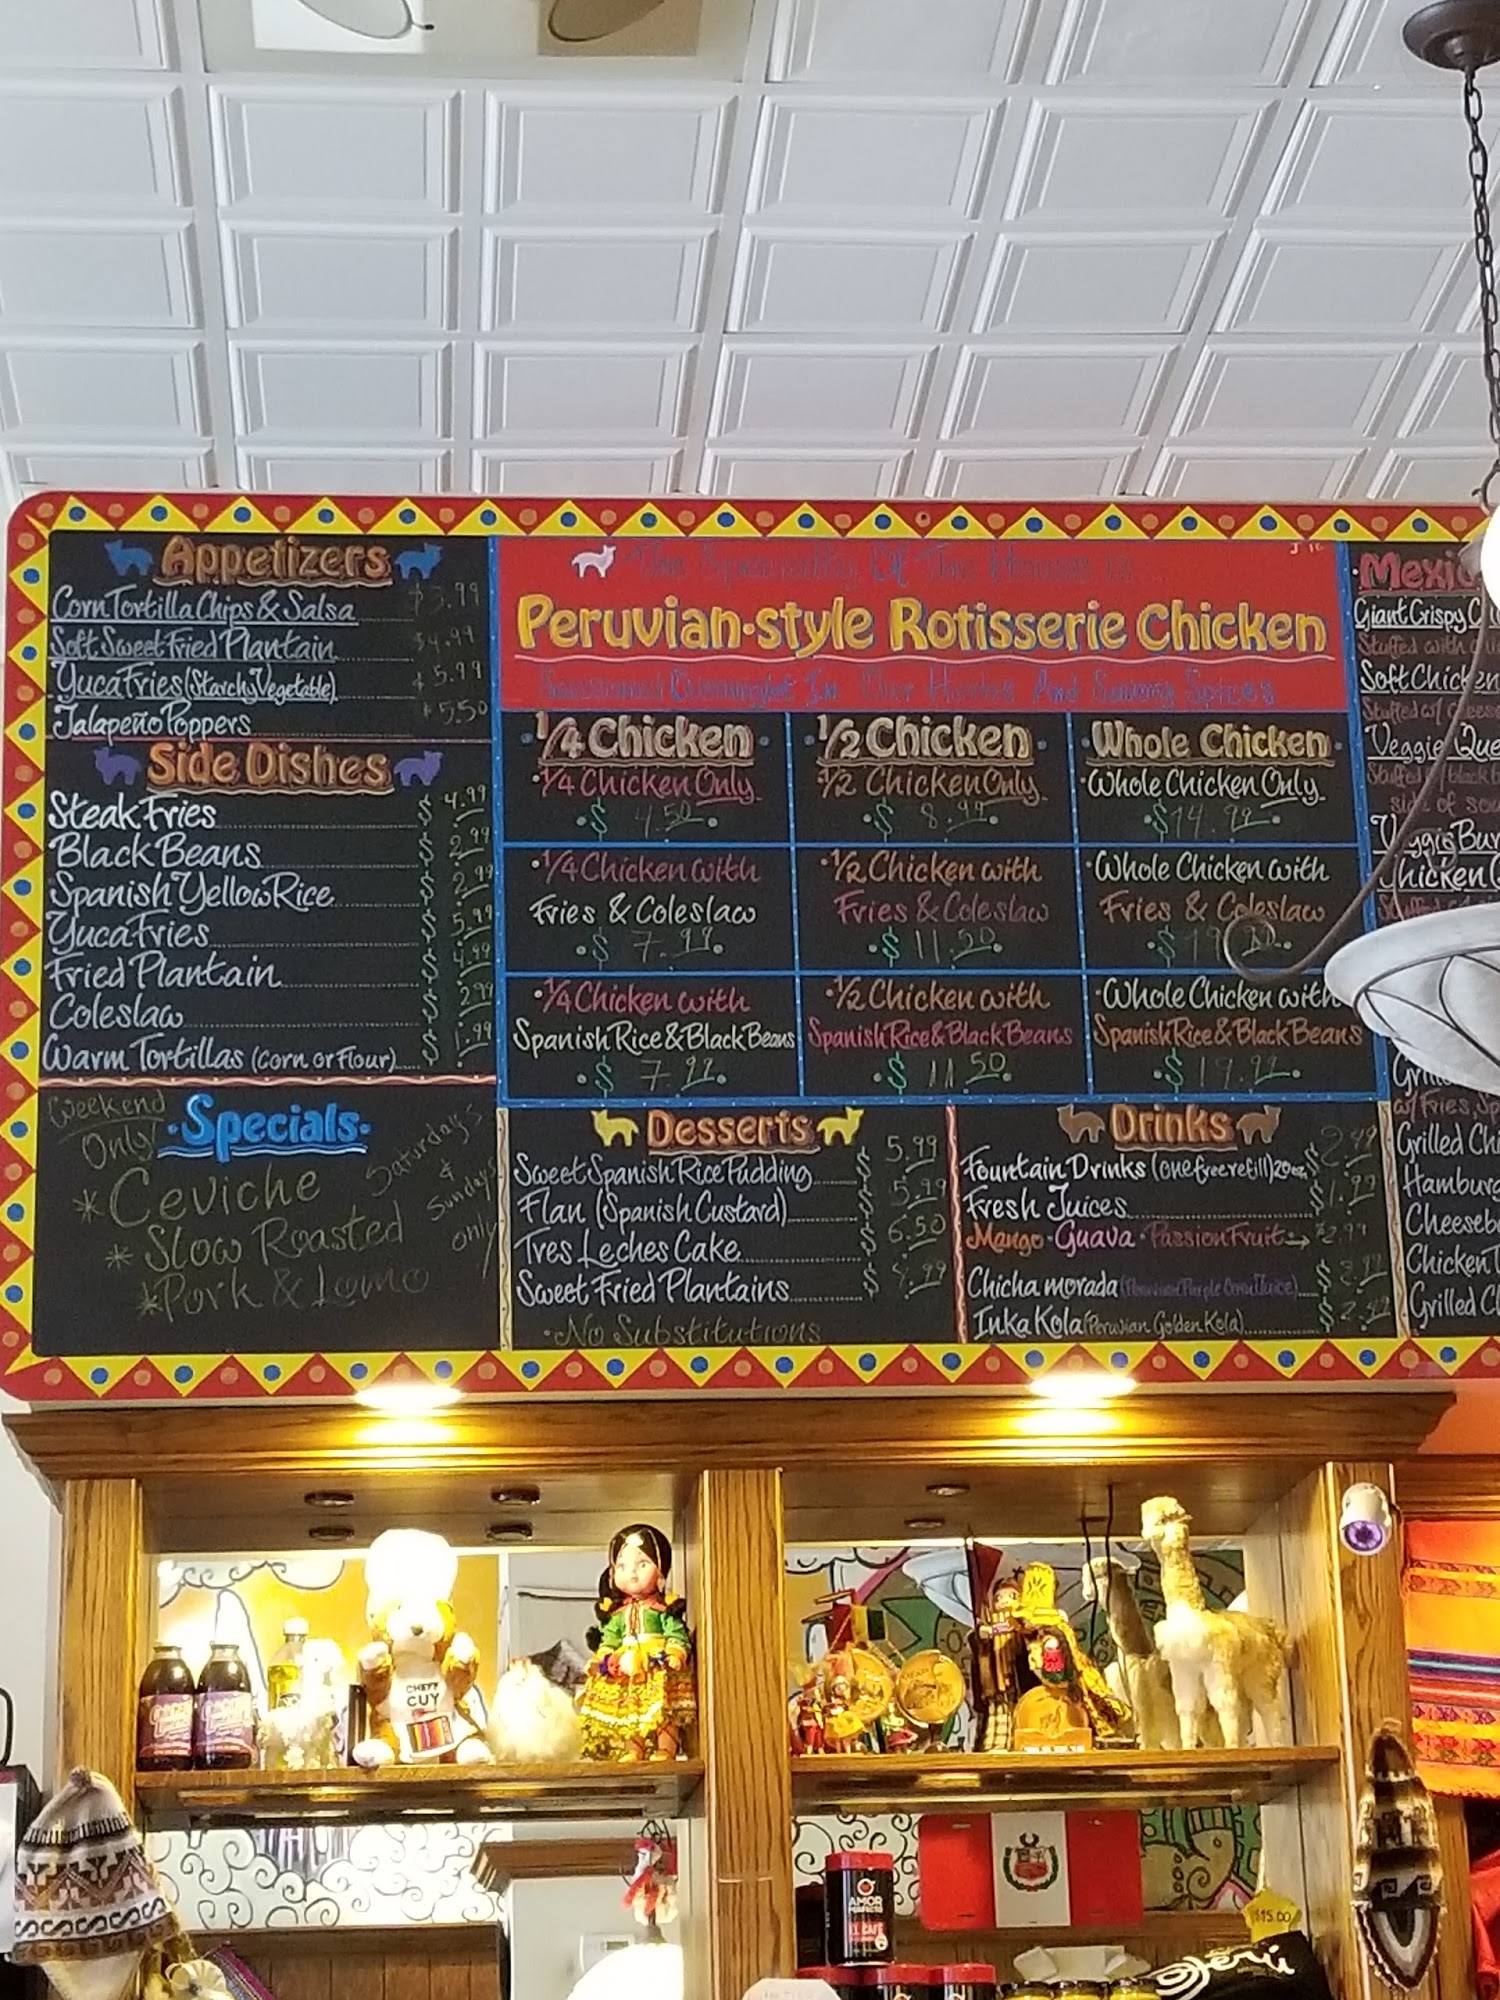 Appetizers
Corn Tortilla Chips & Salsa $3.99
Soft Sweet Fried Plantain $4.99
Yuca Fries (Starchy Vegetable) $5.99
Jalapeño Poppers $5.50
Side Dishes
Steak Fries $4.99
Black Beans $2.99
Spanish Yellow Rice $2.99
Yuca Fries $5.99
Fried Plantain $4.99
Coleslaw $2.99
Warm Tortillas (Corn or Flour) $1.99
Weekend Only!
Specials
*Ceviche
*Slow Roasted
*Pork & Lomo
Saturdays & Sundays only
The Specialty Of The House is
Peruvian-style Rotisserie Chicken
Seasoned Overnight In Our Herbs And Savory Spices
1/4 Chicken
1/4 Chicken Only
$4.50
1/4 Chicken with
Fries & Coleslaw
$7.99
1/4 Chicken with
Spanish Rice & Black Beans
$7.99
1/2 Chicken
1/2 Chicken Only
$8.99
1/2 Chicken with
Fries & Coleslaw
$11.50
1/2 Chicken with
Spanish Rice & Black Beans
$11.50
Whole Chicken
Whole Chicken Only
$14.99
Whole Chicken with
Fries & Coleslaw
Whole Chicken with
Spanish Rice & Black Beans
$19.99
Desserts
Sweet Spanish Rice Pudding $5.99
Flan (Spanish Custard) $5.99
Tres Leches Cake $6.50
Sweet Fried Plantains
·No Substitutions
Drinks
Fountain Drinks (one free refill) 20oz. $2.49
Fresh Juices $1.99
Mango · Guava · Passion Fruit → $2.99
Chicha morada (Peruvian Purple Corn Juice)
Inka Kola (Peruvian Golden Kola) $2.49
Giant Crispy
Stuffed with
Soft Chicken
Stuffed w/
Veggie
side of
Chicken
w/ Fries,
Grilled
Chicken
Grilled
CHEFF
CUY
AMOR
PERFECTO
EL CAFÉ
$15.00
Perú